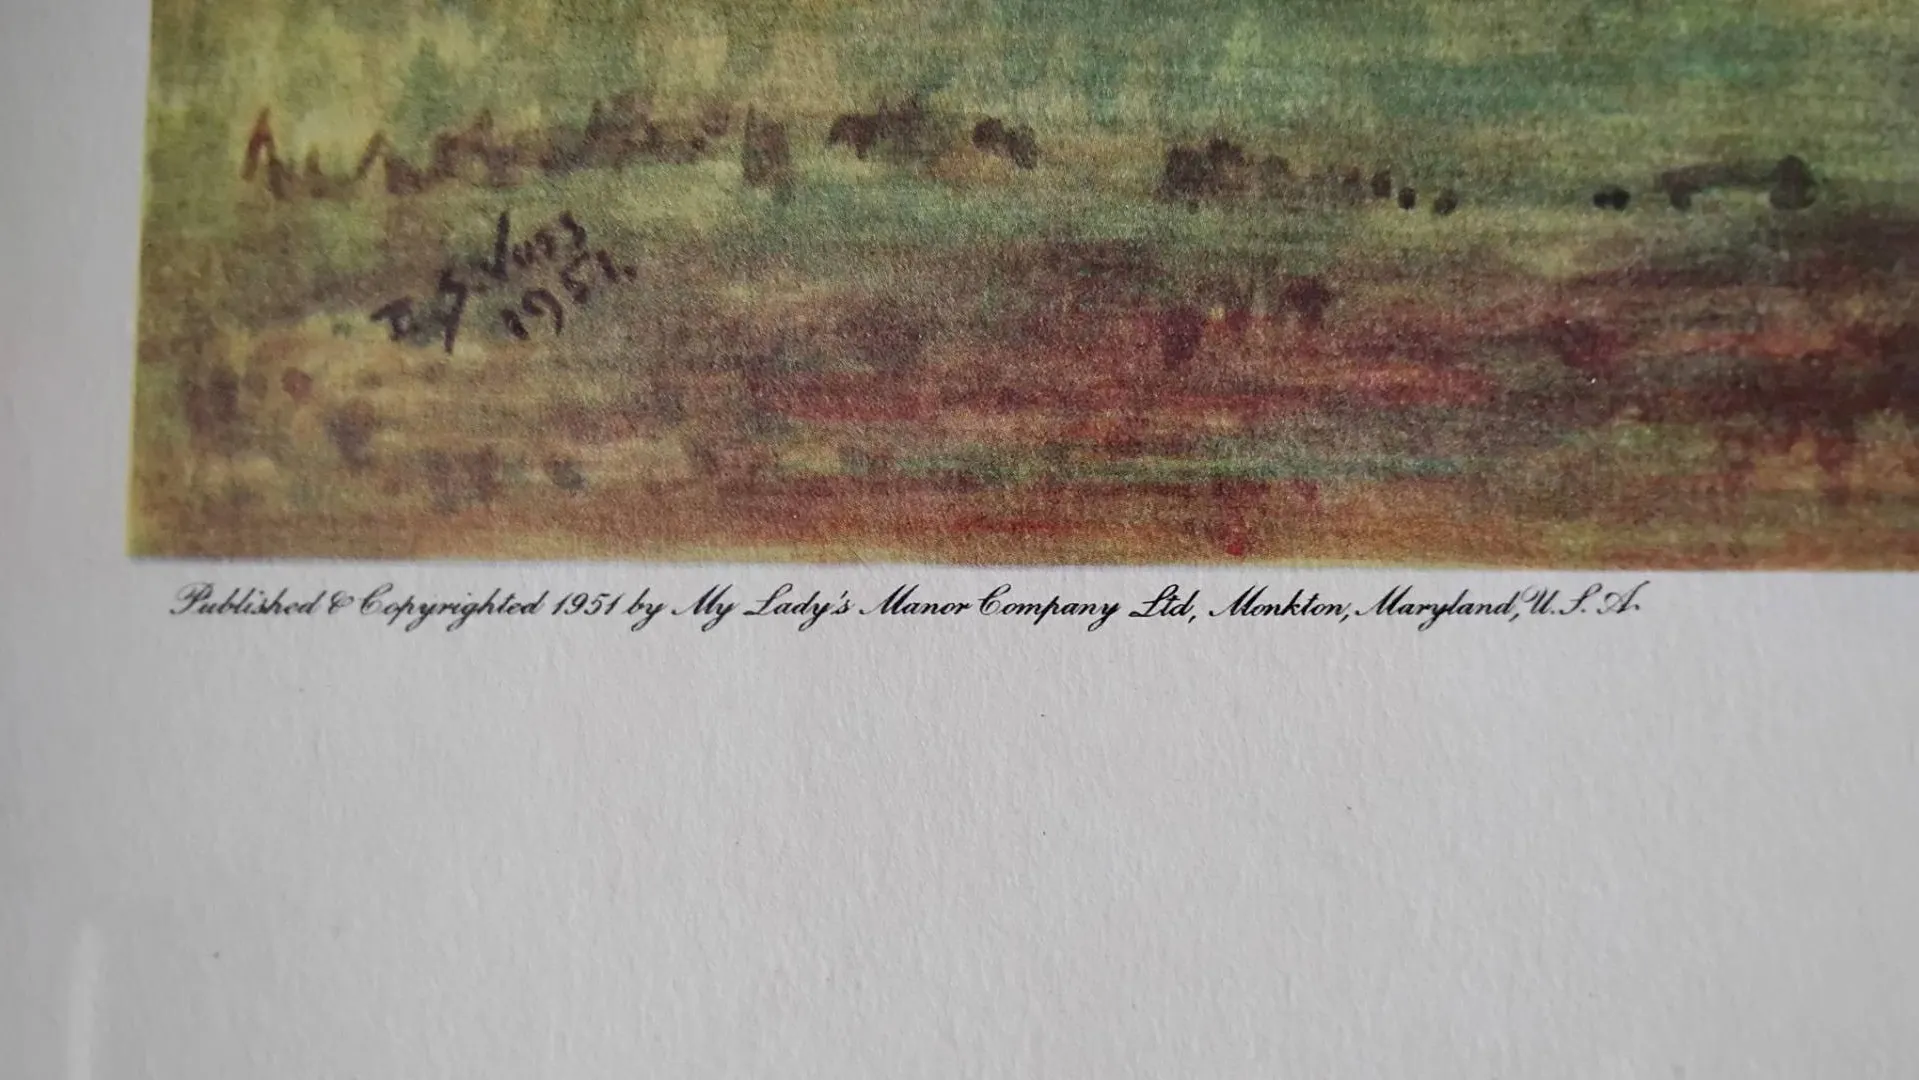 F. S. Voss
1951.
Published & Copyrighted 1951 by My Lady's Manor Company Ltd, Monkton, Maryland, U. S. A.